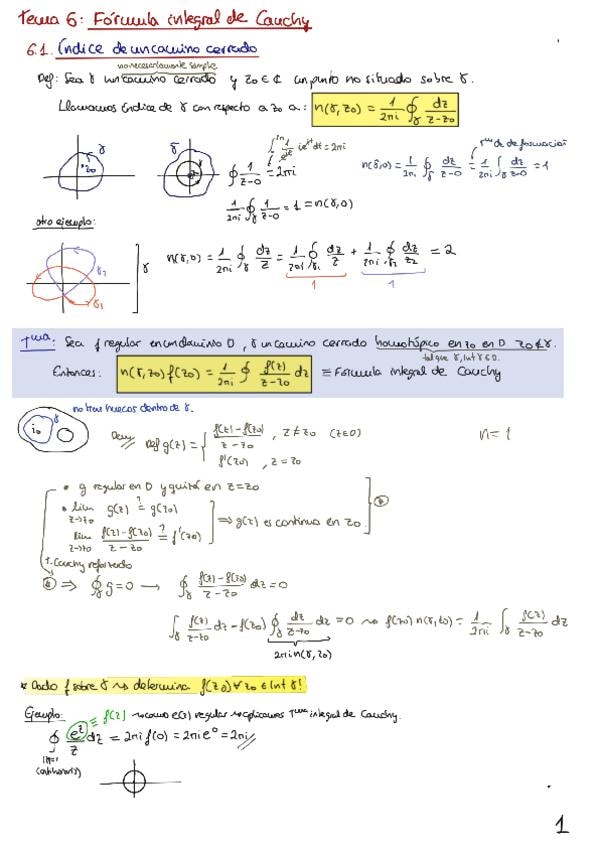 Tema 6: Fórmula integral de Cauchy
6.1. Índice de un camino cerrado
no necesariamente simple
Def: Sea γ un camino cerrado y z₀ ∈ ℂ un punto no situado sobre γ.
Llamamos índice de γ con respecto a z₀ a: n(γ, z₀) = 1/2πi ∮γ dz/z-z₀
γ
z₀
γ
∮γ 1/z-0 = 2πi
1/2πi ∮γ 1/z-0 = 1 = n(γ,0)
n(γ,0) = 1/2πi ∮γ dz/z-0 = 1/2πi ∫γ dz/z-0 = 1
otro ejemplo:
γ₂
γ₁
γ
n(γ,0) = 1/2πi ∮γ dz/z = 1/2πi ∮γ₁ dz/z + 1/2πi ∮γ₂ dz/z₂ = 2
1
1
Tma: Sea f regular en un dominio D, γ un camino cerrado homotópico en z₀ en D z₀∉γ.
tal que γ, Int γ ⊆ D.
Entonces: n(γ, z₀) f(z₀) = 1/2πi ∮ f(z)/z-z₀ dz ≡ Fórmula integral de Cauchy
no hay huecos dentro de γ.
Dem Def g(z) = { f(z)-f(z₀)/z-z₀ , z≠z₀ (z∈D)
f'(z₀) , z=z₀
n=1
• g regular en D y quizá en z=z₀
• lim z→z₀ g(z) ?= g(z₀)
lim z→z₀ f(z)-f(z₀)/z-z₀ ?= f'(z₀)
⇒ g(z) es continua en z₀.
T. Cauchy reforzado
⇒ ∮γ g=0 → ∮γ f(z)-f(z₀)/z-z₀ dz=0
∫γ f(z)/z-z₀ dz - f(z₀) ∮γ dz/z-z₀ dz = 0 ⇝ f(z₀) n(γ, z₀) = 1/2πi ∫γ f(z)/z-z₀ dz
2πi n(γ, z₀)
* Dado f sobre γ ⇝ determina f(z₀) ∀ z₀ ∈ Int γ!
Ejemplo: ≡ f(z) ⇝ como e(z) regular ⇝ aplicamos Tma integral de Cauchy.
∮ e^z/z dz = 2πi f(0) = 2πi e⁰ = 2πi
|z|=1
(antihorario)
1